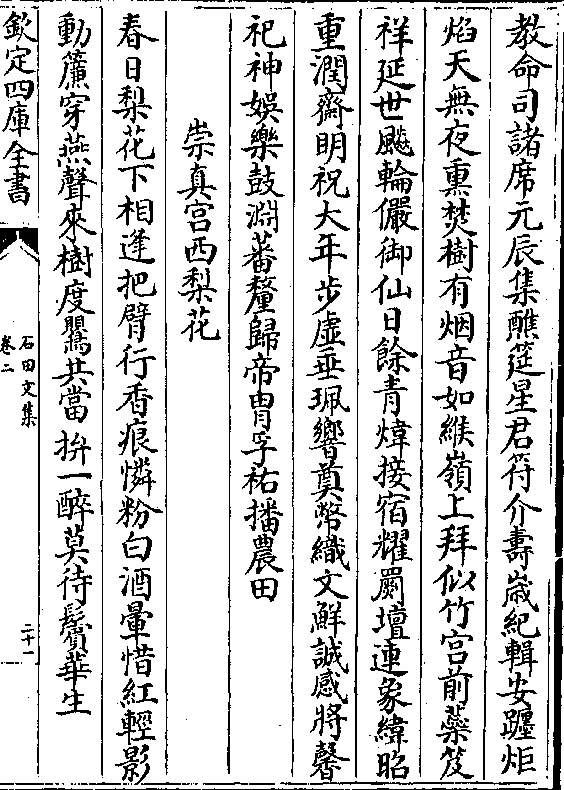 教命司諸席元辰集醮筵星君符介壽嵗紀輯安躔炬
焰天無夜熏焚樹有烟音如緱嶺上拜似竹宮前蘂笈
祥延世飇輪儼御仙日餘青煒接宿耀罽壇連象緯昭
重潤齋明祝大年步虛垂珮響奠幣織文鮮誠感將馨
祀神娛樂鼓淵蕃釐歸帝胄孚祐播農田
崇真宮西梨花
春日梨花下相逢把臂行香痕憐粉白酒暈惜紅輕影
動簾穿燕聲來樹度鸎共當拚一醉莫待鬢華生
欽定四庫全書
石田文集
卷二
二十一